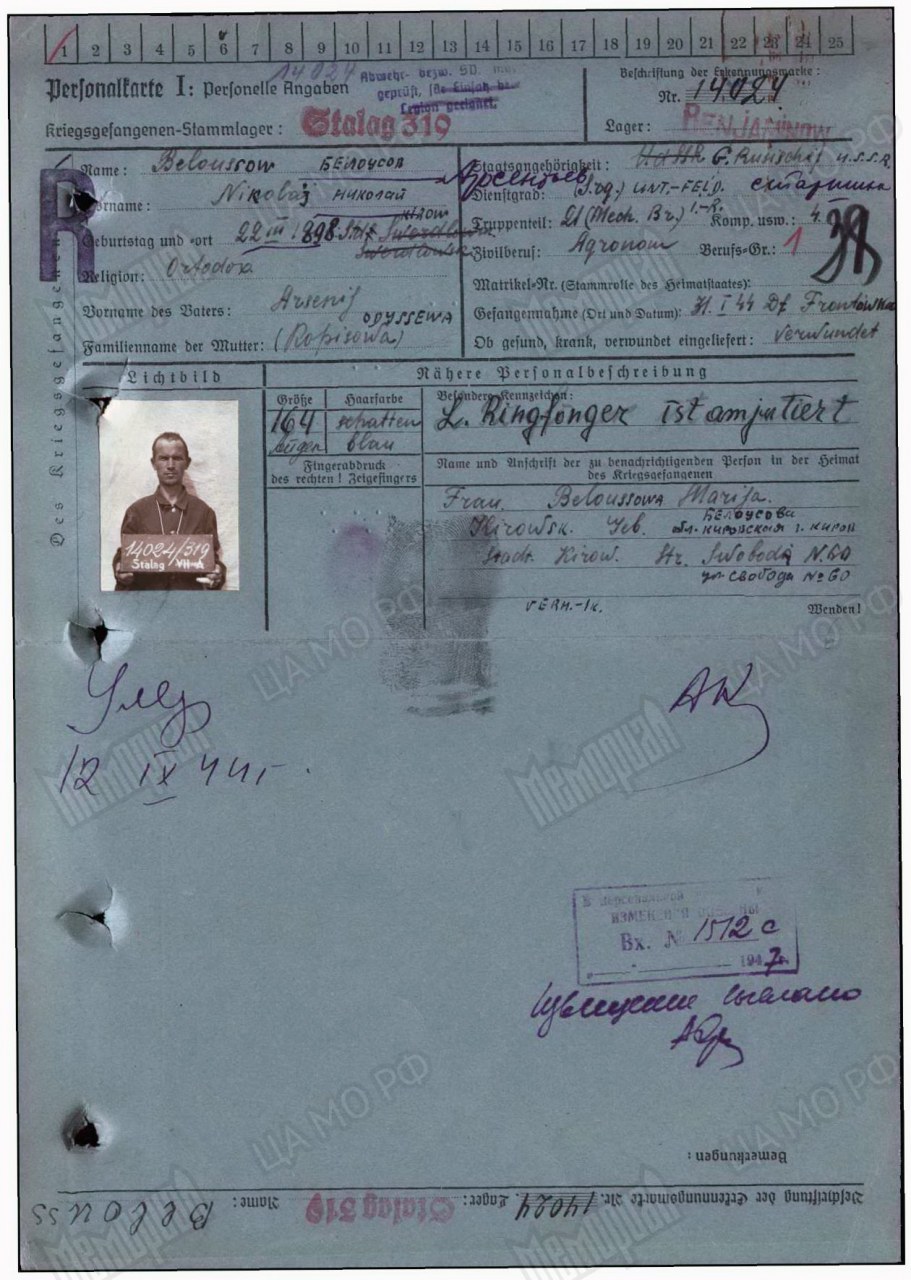 1 2 3 4 5 6 7 8 9 10 11 12 13 14 15 16 17 18 19 20 21 22 23 24 25
Personalkarte I: Personelle Angaben
14024
Abwehr- bezw. SD.
geprüft, für Einsatz
Legion geeignet.
Kriegsgefangenen-Stammlager: Stalag 319
Beschriftung der Erkennungsmarke:
Nr. 14024
Lager: BENJAMINOW
Des Kriegsgefangenen
R
Name: Beloussow БЕЛОУСОВ
Арсентьев
Vorname: Nikolaj НИКОЛАЙ
Geburtstag und -ort 22 III 1898
Religion: Ortodox
Vorname des Vaters: Arsenij
ODYSSEWA
Familienname der Mutter: (Kopisowa)
Staatsangehörigkeit: U.d.SSR G. Russisch U.S.S.R.
Dienstgrad: UNT.-FELD.
Truppenteil: 21 (Mech. Br.) Komp. usw.: 4.
Zivilberuf: Agronom Berufs-Gr.: 1
39
Matrikel-Nr. (Stammrolle des Heimatstaates):
Gefangennahme (Ort und Datum): 31. I 44 Df
Ob gesund, krank, verwundet eingeliefert: verwundet
Lichtbild
Nähere Personalbeschreibung
Größe Haarfarbe
164 schatten
augen blau
Besondere Kennzeichen:
L. Ringfinger ist amputiert
Fingerabdruck
des rechten! Zeigefingers
Name und Anschrift der zu benachrichtigenden Person in der Heimat
des Kriegsgefangenen
Frau Beloussowa Marija.
БЕЛОУСОВА
Kirowsk. Geb. обл. КИРОВСКАЯ г. КИРОВ
Stadt Kirow. Str. Swoboda N.60
ул СВОБОДЫ №60
Wenden!
14024/319
Stalag VII-A
12 IX 44 г.
ИЗМЕН
Вх. № 1512 с
1947г.
Bemerkungen:
Beschriftung der Erkennungsmarke Nr. 14024 Lager: Stalag 319 Name: Belouss
Мемориал
ЦА МО РФ